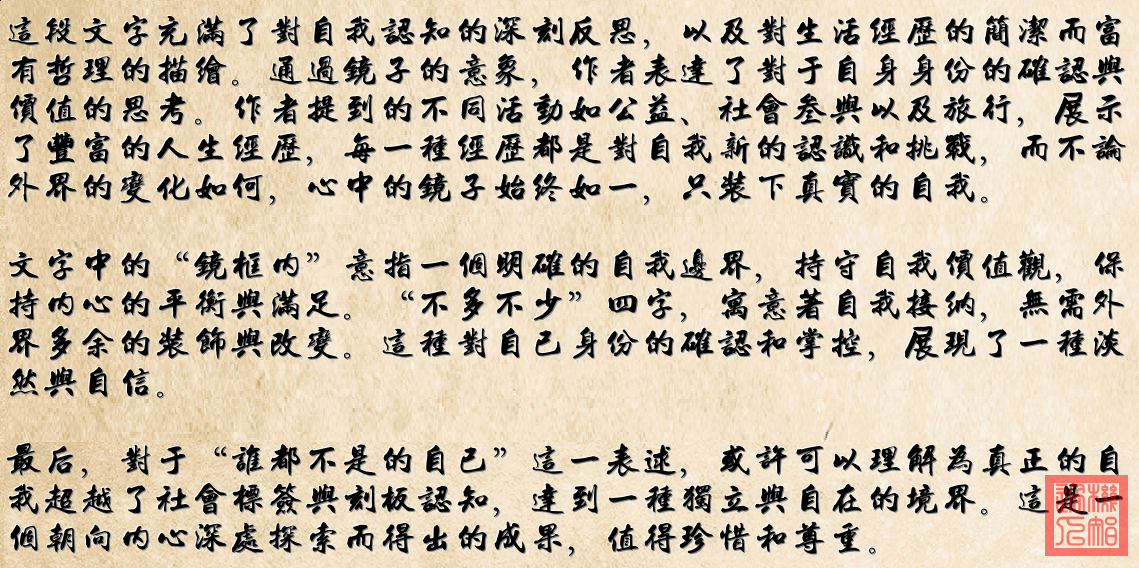 這段文字充滿了對自我認知的深刻反思，以及對生活經歷的簡潔而富
有哲理的描繪。通過鏡子的意象，作者表達了對于自身身份的確認與
價值的思考。作者提到的不同活動如公益、社會叁與以及旅行，展示
了豐富的人生經歷，每一種經歷都是對自我新的認識和挑戰，而不論
外界的變化如何，心中的鏡子始終如一，只裝下真實的自我。
文字中的“鏡框内”意指一個明確的自我邊界，持守自我價值觀，保
持内心的平衡與滿足。“不多不少”四字，寓意著自我接納，無需外
界多余的裝飾與改變。這種對自己身份的確認和掌控，展現了一種淡
然與自信。
最后，對于“誰都不是的自己”這一表述，或許可以理解為真正的自
我超越了社會標簽與刻板認知，達到一種獨立與自在的境界。這是一
個朝向内心深處探索而得出的成果，值得珍惜和尊重。